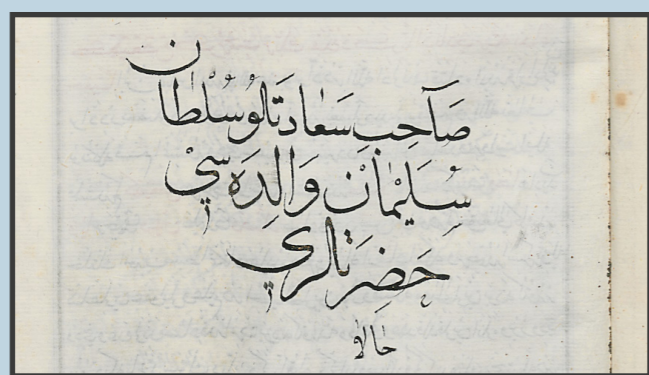 صَاحِبِ سَعَادَتَلُو سُلْطَان
سُلَيْمَانْ وَالِدَه سِيْ
حَضْرَتْلَرِيْ
حالا